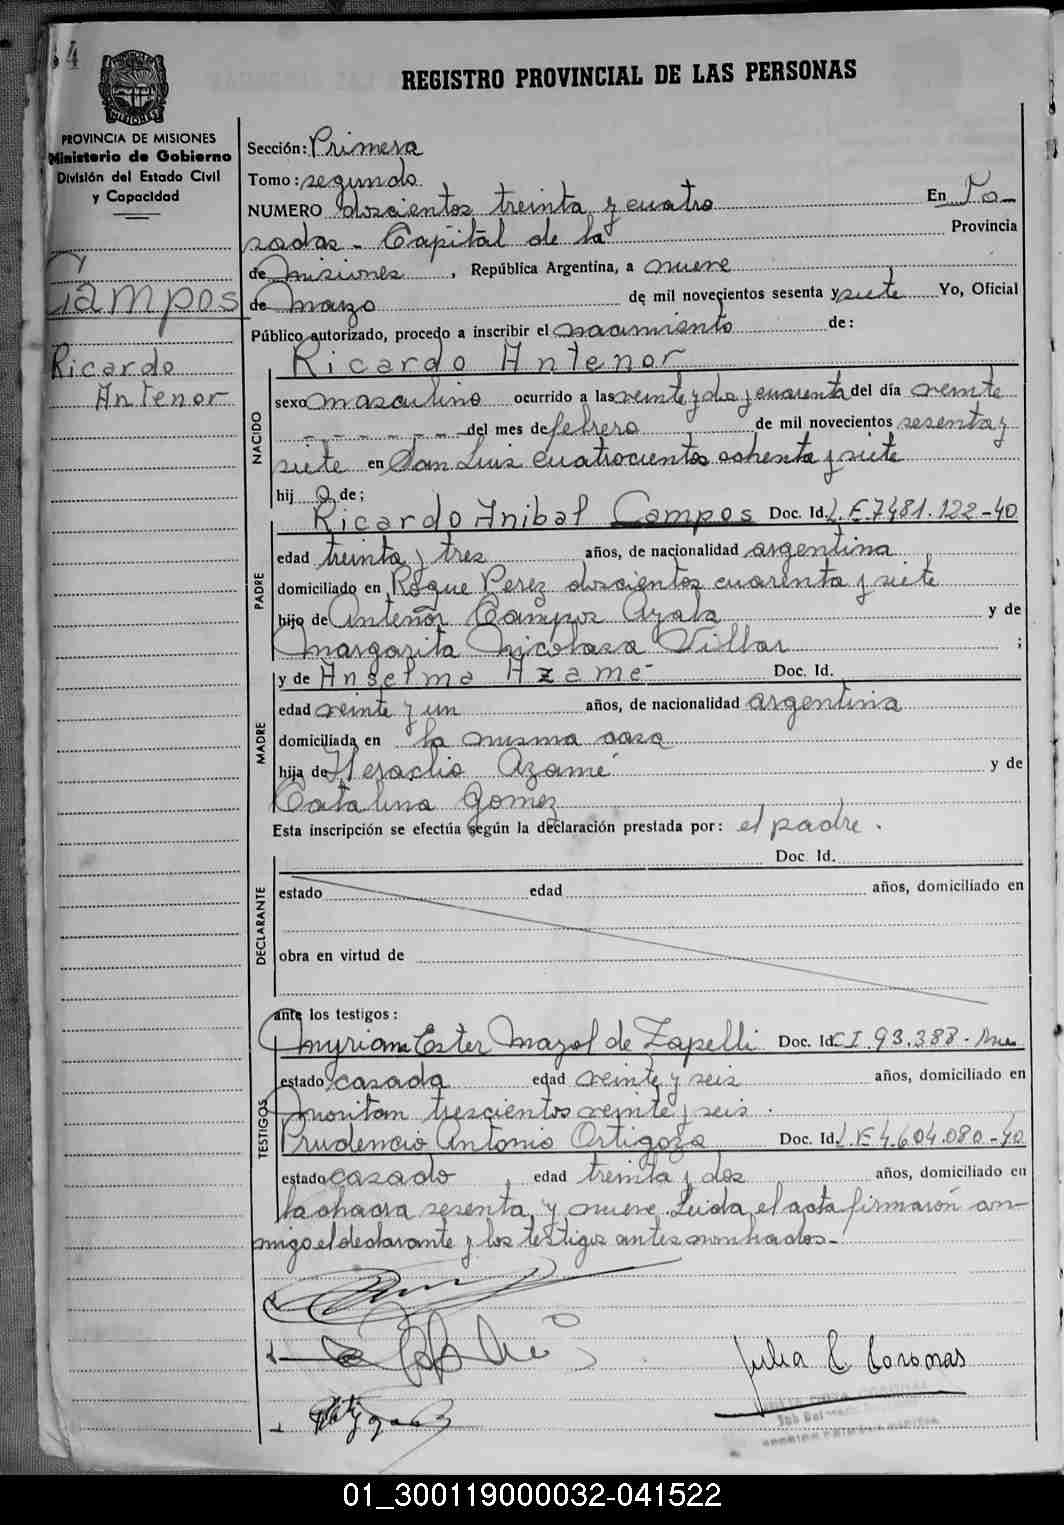 4
REGISTRO PROVINCIAL DE LAS PERSONAS
PROVINCIA DE MISIONES
Ministerio de Gobierno
División del Estado Civil
y Capacidad
Campos
Ricardo
Antenor
Sección: Primera
Tomo: segundo
NUMERO doscientos treinta y cuatro En Po-
sadas - Capital de la Provincia
de Misiones, República Argentina, a nueve
de Marzo de mil novecientos sesenta y siete Yo, Oficial
Público autorizado, procedo a inscribir el nacimiento de:
Ricardo Antenor
NACIDO
sexo masculino ocurrido a las veinte y dos y cuarenta del día veinte
- - - - - - del mes de febrero de mil novecientos sesenta y
siete en San Luis cuatrocientos ochenta y siete
hijo de;
PADRE
Ricardo Anibal Campos Doc. Id. L.E. 7481.122-40
edad treinta y tres años, de nacionalidad argentina
domiciliado en Roque Perez doscientos cuarenta y siete
hijo de Antenor Campos Ayala y de
Margarita Nicolasa Villar ;
MADRE
y de Anselma Azamé Doc. Id.
edad veinte y un años, de nacionalidad argentina
domiciliada en la misma casa
hija de Heraclio Azamé y de
Catalina Gomez
Esta inscripción se efectúa según la declaración prestada por: el padre.
DECLARANTE
Doc. Id.
estado edad años, domiciliado en
obra en virtud de
ante los testigos:
TESTIGOS
Myriam Ester Mazal de Zapelli Doc. Id. C.I. 93.388
estado casada edad veinte y seis años, domiciliado en
Moritan trescientos veinte y seis.
Prudencio Antonio Ortigoza Doc. Id. L.E 4.604.080-40
estado casado edad treinta y dos años, domiciliado en
la chacra sesenta y nueve. Leida el acta firmaron con-
migo el declarante y los testigos antes nombrados.-
Julia C. Coronas
01_300119000032-041522